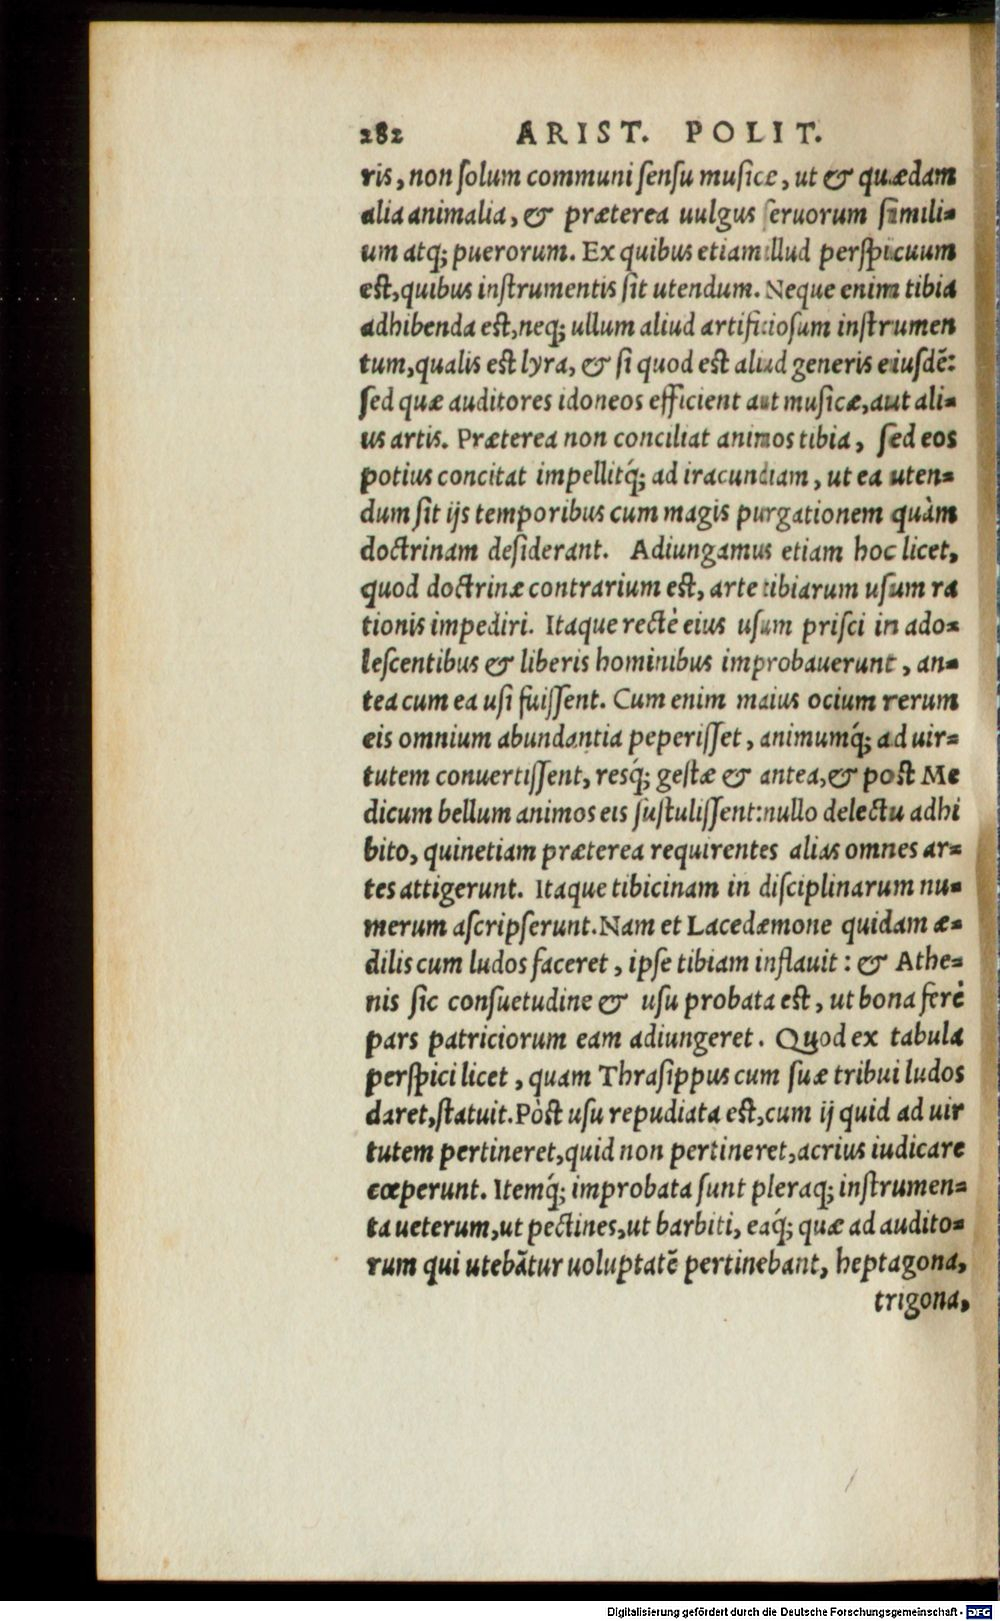 282 ARIST. POLIT.
ris, non ſolum communi ſenſu muſicæ, ut & quædam
alia animalia, & præterea uulgus ſeruorum ſimili-
um atq; puerorum. Ex quibus etiam illud perſpicuum
eſt, quibus inſtrumentis ſit utendum. Neque enim tibia
adhibenda eſt, neq; ullum aliud artificioſum inſtrumen
tum, qualis eſt lyra, & ſi quod eſt aliud generis eiuſdē:
ſed quæ auditores idoneos efficient aut muſicæ, aut ali-
us artis. Præterea non conciliat animos tibia, ſed eos
potius concitat impellitq́; ad iracundiam, ut ea uten-
dum ſit ijs temporibus cum magis purgationem quàm
doctrinam deſiderant. Adiungamus etiam hoc licet,
quod doctrinæ contrarium eſt, arte tibiarum uſum ra
tionis impediri. Itaque rectè eius uſum priſci in ado-
leſcentibus & liberis hominibus improbauerunt, an-
tea cum ea uſi fuiſſent. Cum enim maius ocium rerum
eis omnium abundantia peperiſſet, animumq́; ad uir-
tutem conuertiſſent, resq́; geſtæ & antea, & poſt Me
dicum bellum animos eis ſuſtuliſſent: nullo delectu adhi
bito, quinetiam præterea requirentes alias omnes ar-
tes attigerunt. Itaque tibicinam in diſciplinarum nu-
merum aſcripſerunt. Nam et Lacedæmone quidam æ-
dilis cum ludos faceret, ipſe tibiam inflauit: & Athe-
nis ſic conſuetudine & uſu probata eſt, ut bona ferè
pars patriciorum eam adiungeret. Quod ex tabula
perſpici licet, quam Thraſippus cum ſuæ tribui ludos
daret, ſtatuit. Pòſt uſu repudiata eſt, cum ij quid ad uir
tutem pertineret, quid non pertineret, acrius iudicare
cœperunt. Itemq́; improbata ſunt pleraq; inſtrumen-
ta ueterum, ut pectines, ut barbiti, eaq́; quæ ad audito-
rum qui utebātur uoluptatē pertinebant, heptagona,
trigona,
Digitalisierung gefördert durch die Deutsche Forschungsgemeinschaft - DFG